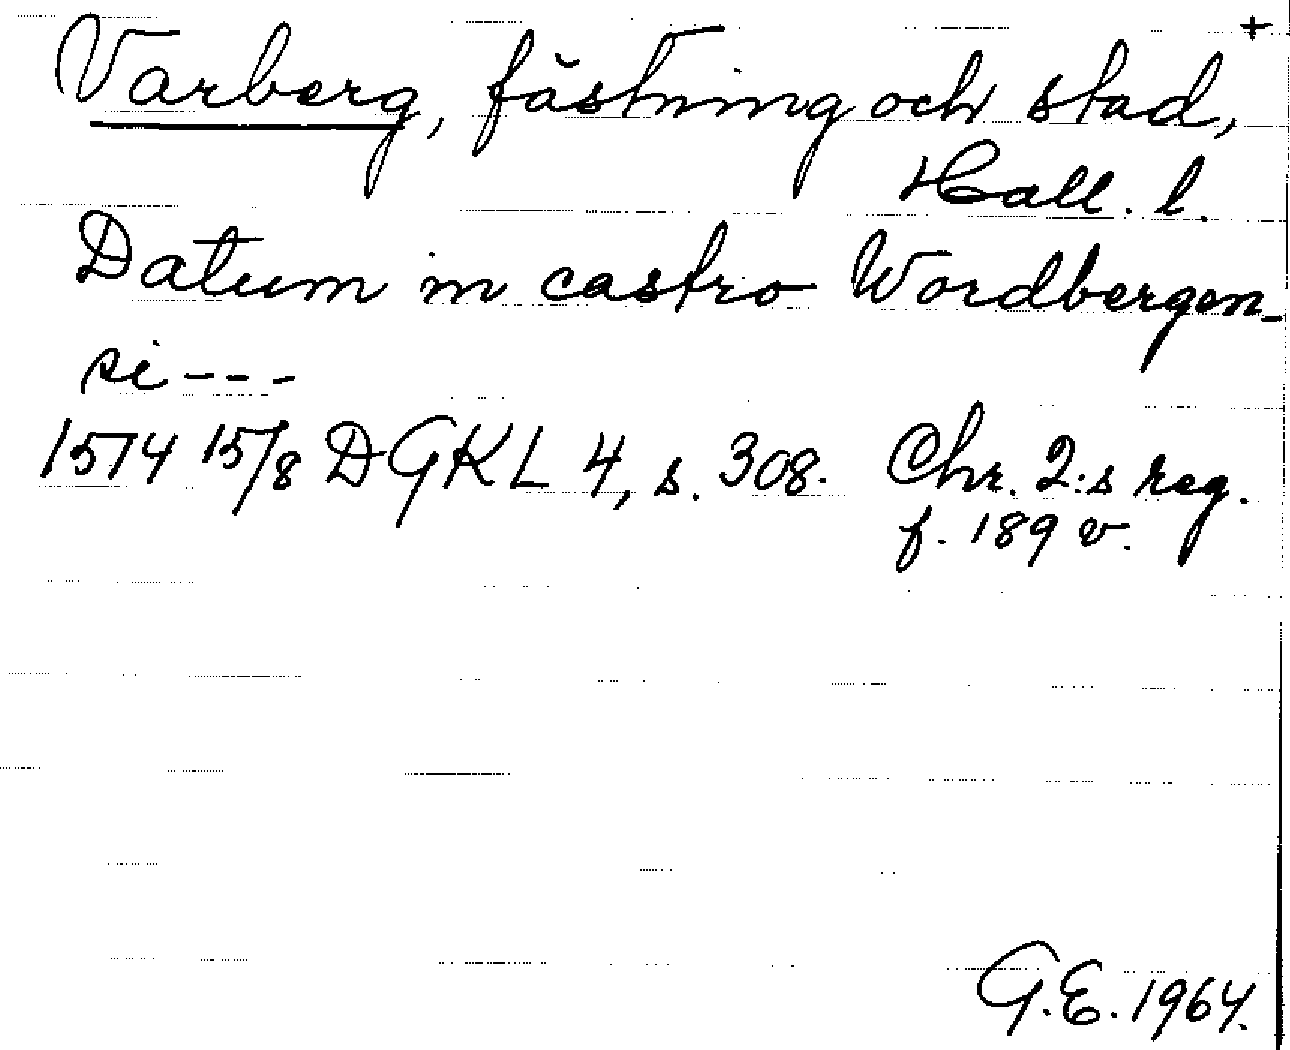 +
Varberg, fästning och stad,
Hall. l.
Datum in castro Wordbergen-
si ---
1514 15/8 DGKL 4, s. 308. Chr. 2:s reg.
f. 189 v.
G.E. 1964.